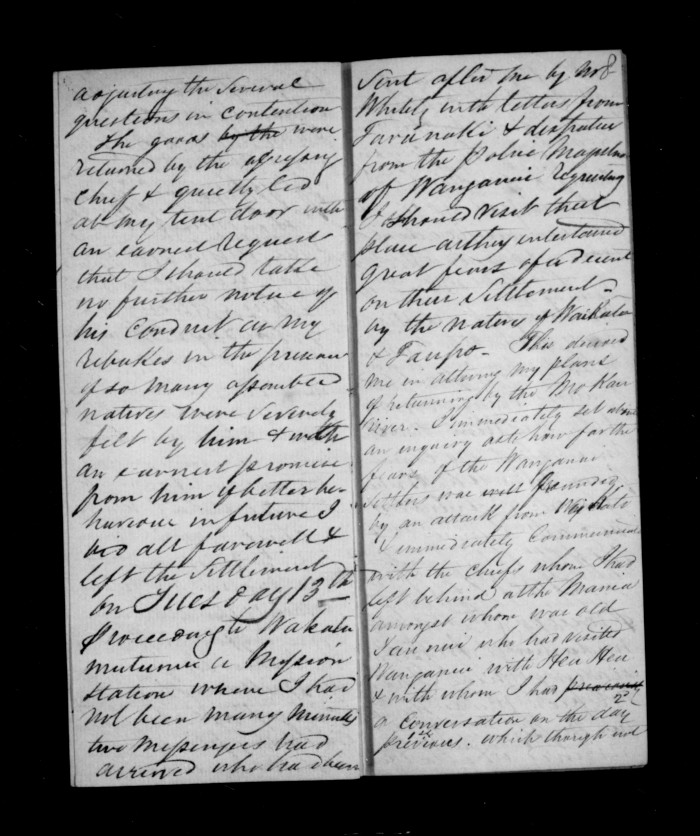 adjusting the several
questions in contention
The goods by the were
returned by the agressing
chief & quietly led
at my tent door with
an earnest request
that I should take
no further notice of
his conduct as my
rebukes in the presence
of so many assembled
natives were severely
felt by him & with
an earnest promise
from him of better be-
haveour in future I
bid all farewell &
left the Settlement
on Tuesday 13th
Proceeding to Wakatu
mutumu a Mission
station where I had
not been many minutes
two messengers had
arrived who had been
8
Sent after me by Mr
Whitely with letters from
Taranaki & despatches
from the Police Magistrate
of Wanganui Requesting
I should visit that
place as they entertained
great fears of a descent
on their Settlement
by the natives of Waikato
& Taupo - This decided
me in altering my plans
of returning by the Mokau
river. I immediately set about
an enquiry as to how far the
fears of the Wanganui
Settlers was well founded
by an attack from Waikato
& immediately communicated
with the chiefs whom I had
left behind at the Mania
amongst whom was old
Taonui who had visited
Wanganui with Heu Heu
& with whom I had previously
a conversation on the 2d day
1st
previous. which though not